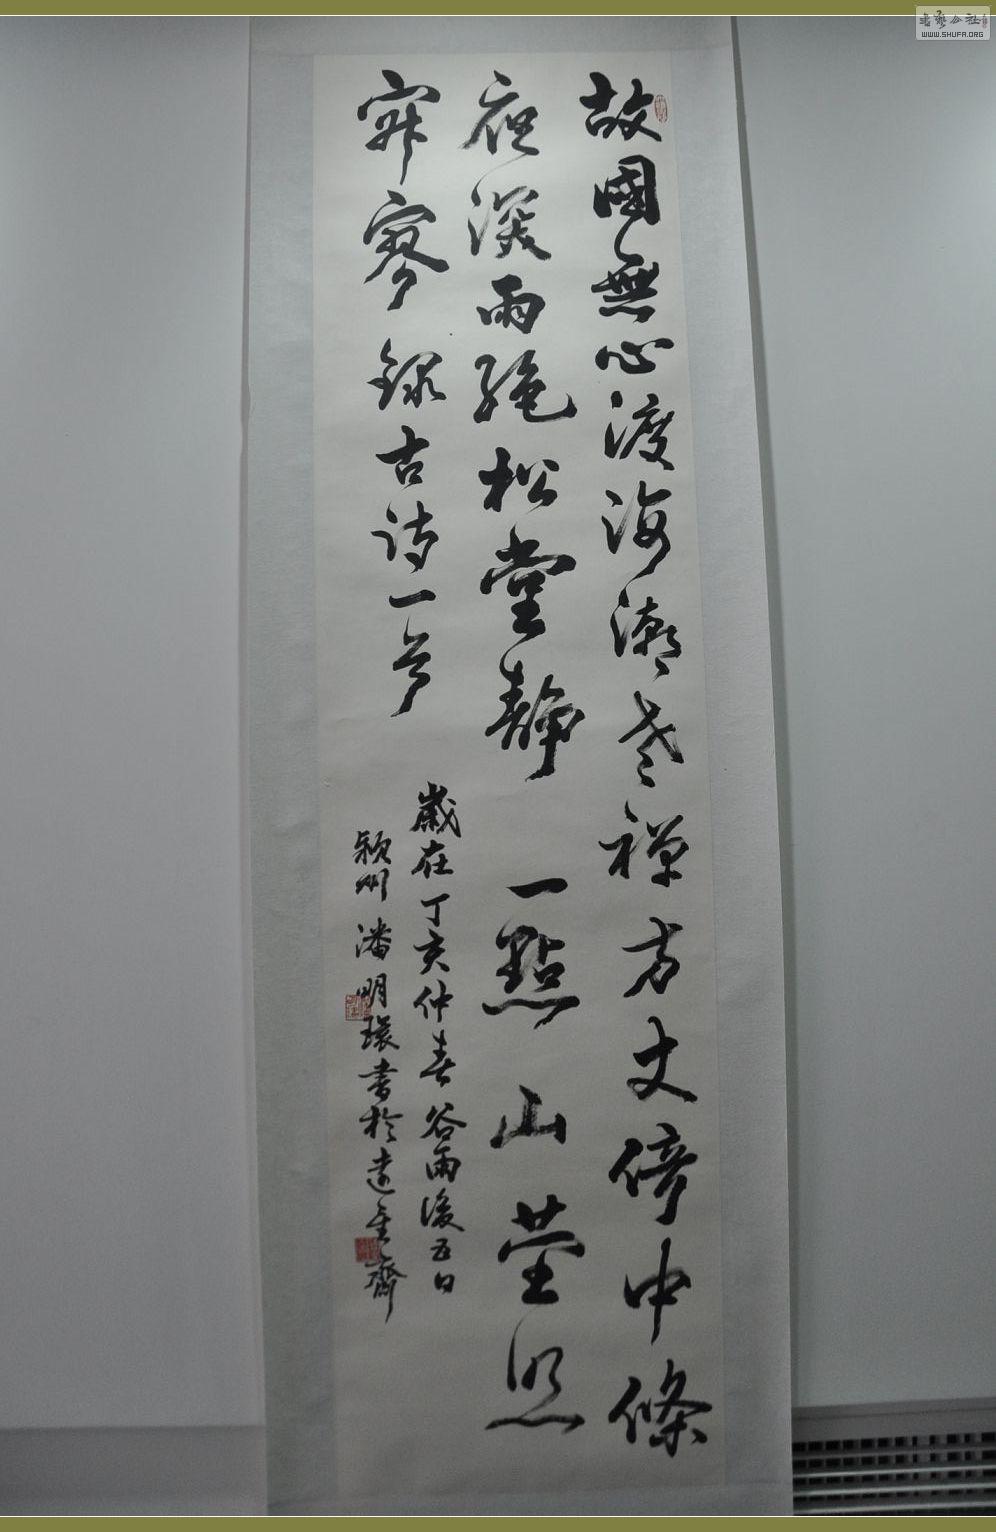 故國無心渡海潮老禪方丈倚中條
夜深雨绝松堂静一點山螢照
寂寥錄古詩一首
歲在丁亥仲春谷雨後五日
潁州潘明環書於遠
齋
WWW.SHUFA.ORG